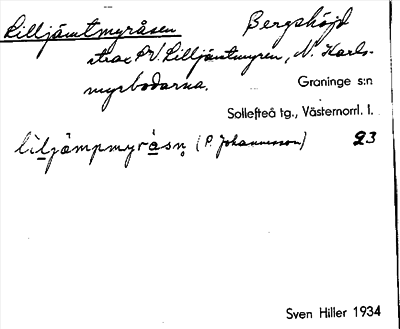 Lilljämtmyråsen Bergshöjd
strax PV. Lilljämtmyren, N. Karls-
myrbodarna.
Graninge s:n
Sollefteå tg., Västernorrl. l.
liljämpmyråsn̥ (P. Johannsson) 23
Sven Hiller 1934